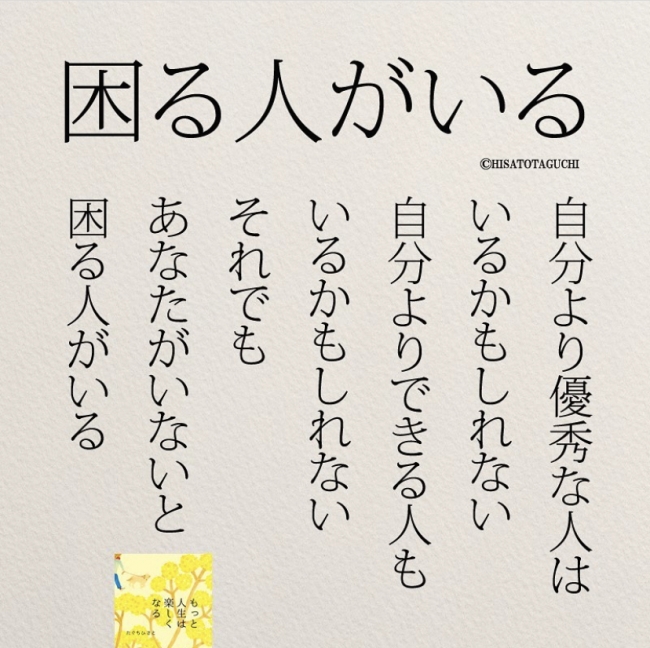 困る人がいる
©HISATOTAGUCHI
自分より優秀な人は
いるかもしれない
自分よりできる人も
いるかもしれない
それでも
あなたがいないと
困る人がいる
もっと
人生は
楽しく
なる
たぐちひさと